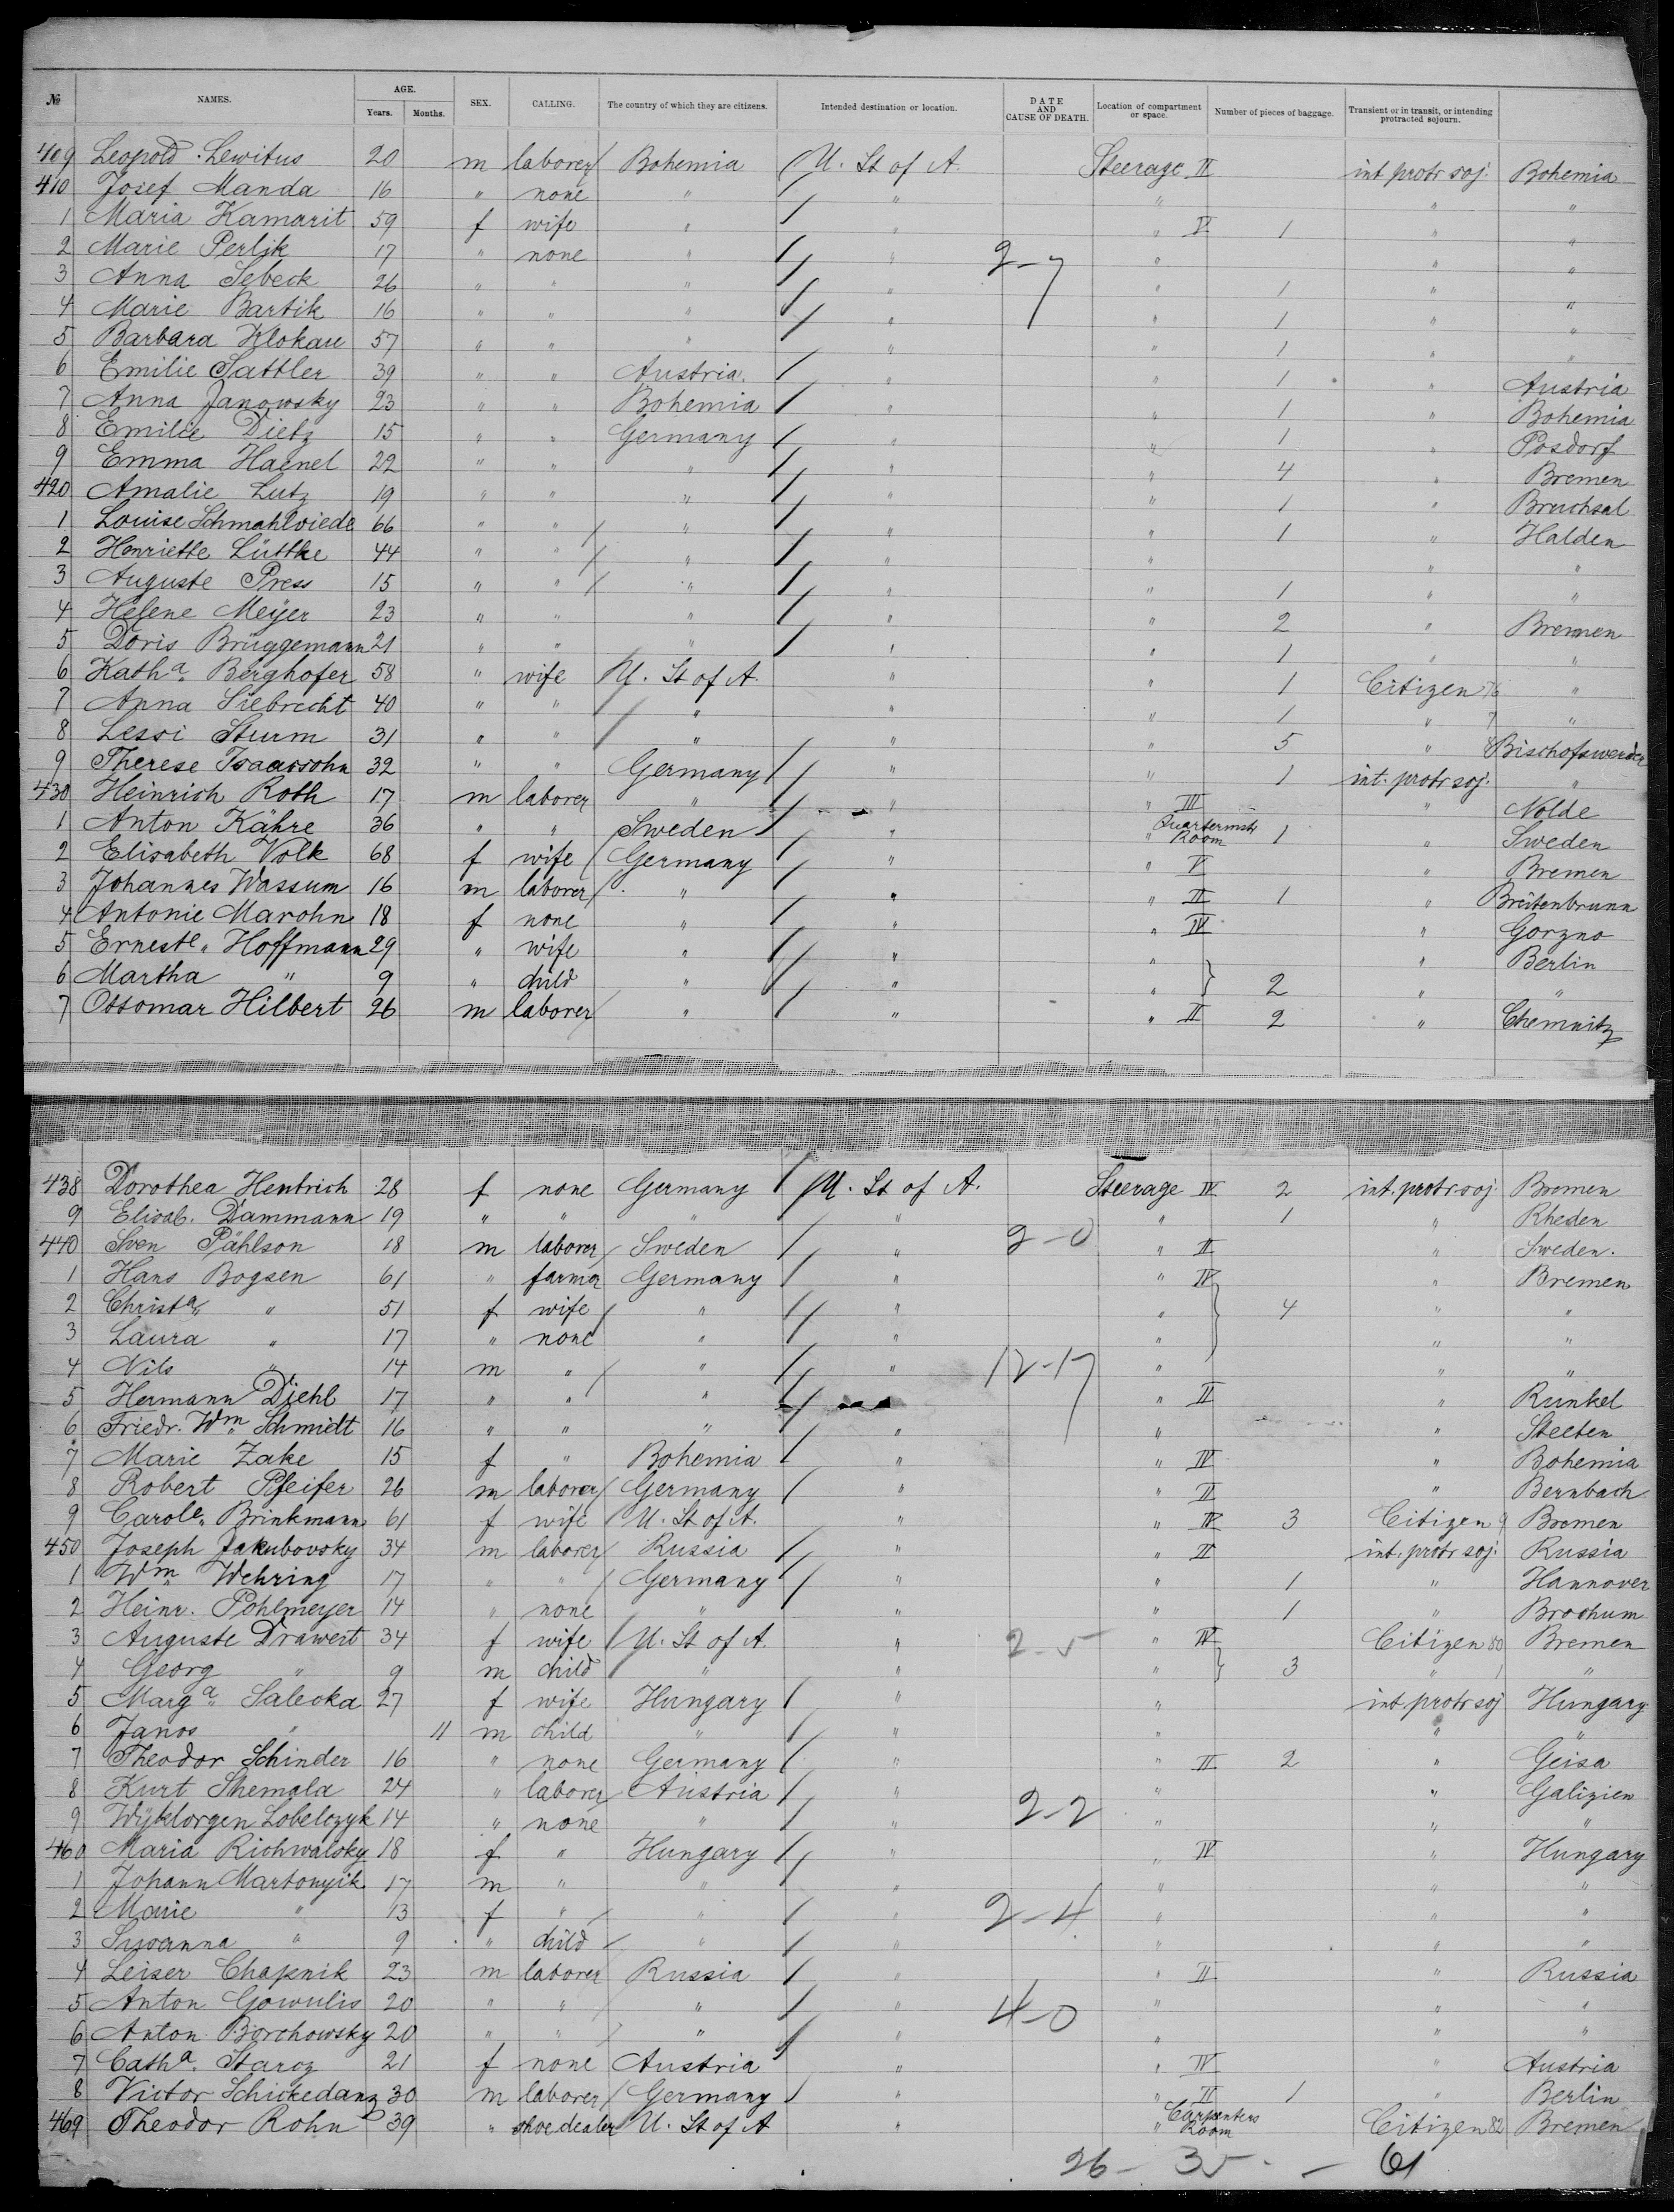 № NAMES. AGE. Years. Months. SEX. CALLING. The country of which they are citizens. Intended destination or location. DATE AND CAUSE OF DEATH. Location of compartment or space. Number of pieces of baggage. Transient or in transit, or intending protracted sojourn.
409 Leopold Lewitus 20 m laborer Bohemia U. St of A. Steerage II int protr soj. Bohemia
410 Josef Manda 16 " none " " " " "
1 Maria Kamarit 59 f wife " " " V 1 " "
2 Marie Perlik 17 " none " " 2-7 " " "
3 Anna Sebeck 26 " " " " " 1 " "
4 Marie Bartik 16 " " " " " 1 " "
5 Barbara Klokau 57 " " " " " 1 " "
6 Emilie Sattler 39 " " Austria. " " 1 " Austria
7 Anna Janowsky 23 " " Bohemia " " 1 " Bohemia
8 Emilie Dietz 15 " " Germany " " 1 " Posdorf
9 Emma Haenel 22 " " " " " 4 " Bremen
420 Amalie Lutz 19 " " " " " 1 " Bruchsal
1 Louise Schmahlviede 66 " " " " " 1 " Halden
2 Henriette Lüttke 44 " " " " " " "
3 Auguste Press 15 " " " " " 1 " "
4 Helene Meÿer 23 " " " " " 2 " Bremen
5 Doris Brüggemann 21 " " " " " 1 " "
6 Katha. Berghofer 58 " wife U. St of A. " " 1 Citizen 76 "
7 Anna Siebrecht 40 " " " " " 1 " 7 "
8 Lessi Sturm 31 " " " " " 5 " 8 Bischofswerder
9 Therese Isaacsohn 32 " " Germany " " 1 int. protr soj. "
430 Heinrich Roth 17 m laborer " " " III " Nolde
1 Anton Kähre 36 " " Sweden " " Quartermstr Room 1 " Sweden
2 Elisabeth Volk 68 f wife Germany " " V " Bremen
3 Johannes Wassum 16 m laborer " " " II 1 " Breitenbrunn
4 Antonie Marohn 18 f none " " " IV " Gorzno
5 Erneste. Hoffmann 29 " wife " " " " Berlin
6 Martha " 9 " child " " " 2 " "
7 Ottomar Hilbert 26 m laborer " " " II 2 " Chemnitz
438 Dorothea Hentrich 28 f none Germany U. St of A. Steerage IV 2 int. protr soj. Bremen
9 Elisab. Dammann 19 " " " " " 1 " Rheden
440 Sven Påhlson 18 m laborer Sweden " 2-0 " II " Sweden.
1 Hans Bogsen 61 " farmer Germany " " IV " Bremen
2 Christa. " 51 f wife " " " 4 " "
3 Laura " 17 " none " " " " "
4 Nils " 14 m " " " 12-17 " " "
5 Hermann Diehl 17 " " " " II " Runkel
6 Friedr. Wm. Schmidt 16 " " " " " " Steeten
7 Marie Zake 15 f " Bohemia " " IV " Bohemia
8 Robert Pfeifer 26 m laborer Germany " " II " Bernbach
9 Carole. Brinkmann 61 f wife U. St of A. " " IV 3 Citizen 9 Bremen
450 Joseph Jakubovsky 34 m laborer Russia " " II int. protr soj. Russia
1 Wm. Wehring 17 " " Germany " " 1 " Hannover
2 Heinr. Pohlmeyer 14 " none " " " 1 " Brochum
3 Auguste Drawert 34 f wife U. St of A. " 2-5 " IV Citizen 80 Bremen
4 Georg " 9 m child " " " 3 " 1 "
5 Marga. Salecka 27 f wife Hungary " " int. protr soj Hungary
6 Janos " 11 m child " " " " "
7 Theodor Schinder 16 " none Germany " " II 2 " Geisa
8 Kurt Shemala 24 " laborer Austria " " " Galizien
9 Wÿktorgen Lobelczyk 14 " none " " 2-2 " " "
460 Maria Richwalsky 18 f " Hungary " " IV " Hungary
1 Johann Martonyik 17 m " " " " " "
2 Marie " 13 f " " " 2-4 " " "
3 Susanna " 9 " child " " " " "
4 Leiser Chapnik 23 m laborer Russia " " II " Russia
5 Anton Gowulis 20 " " " " 4-0 " " "
6 Anton Borchowsky 20 " " " " " " "
7 Catha. Staroz 21 f none Austria " " IV " Austria
8 Victor Schickedanz 30 m laborer Germany " " II 1 " Berlin
469 Theodor Rohn 39 " shoe dealer U. St of A " " Carpenters Room Citizen 82 Bremen
26 - 35 - 61